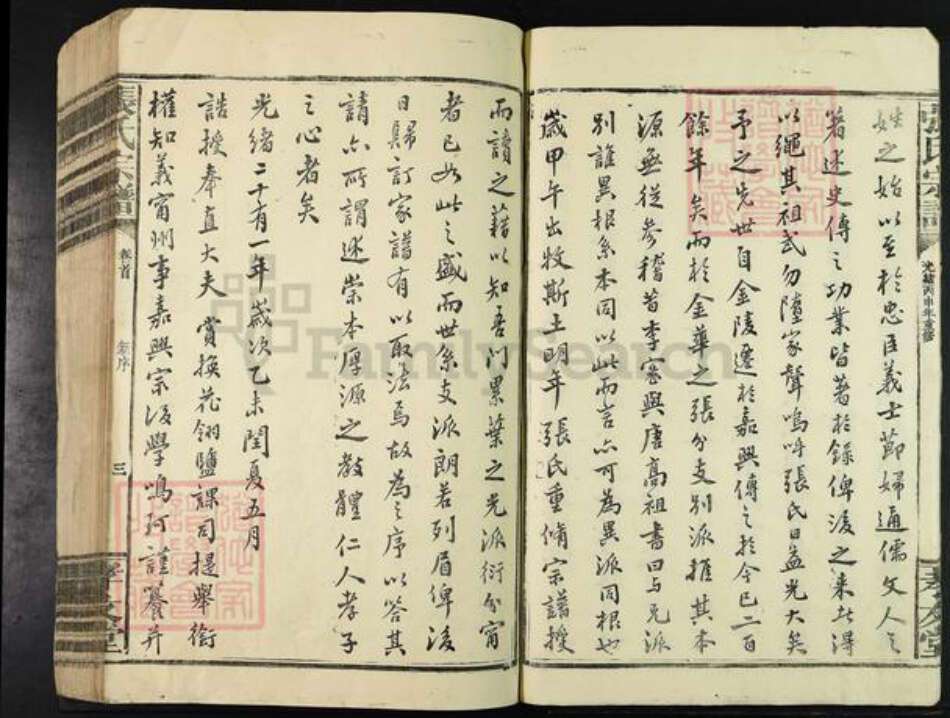 張氏宗譜
光緒丙申年重修
孝友堂
姓之始以至於忠臣義士節婦通儒文人之
著述史傳之功業皆著於錄俾後之來者得
以繩其祖武勿墮家聲嗚呼張氏日益光大矣
予之先世自金陵遷於嘉興傳之於今已二百
餘年矣而於金華之張分支別派推其本
源無從參稽昔李密與唐高祖書曰與兄派
別誰異根系本同以此而言亦可為異派同根也
歲甲午出牧斯土明年張氏重脩宗譜授
而讀之藉以知吾門累葉之光派衍分甯
者已如此之盛而世系支派朗若列眉俾後
日歸訂家譜有以取法焉故為之序以答其
請亦所謂述崇本厚源之教體仁人孝子
之心者矣
光緒二十有一年歲次乙未閏夏五月
誥授奉直大夫 賞換花翎鹽課司提舉銜
權知義甯州事嘉興宗後學鳴珂謹篹并
張氏宗譜
卷首
序
三
孝友堂
FamilySearch